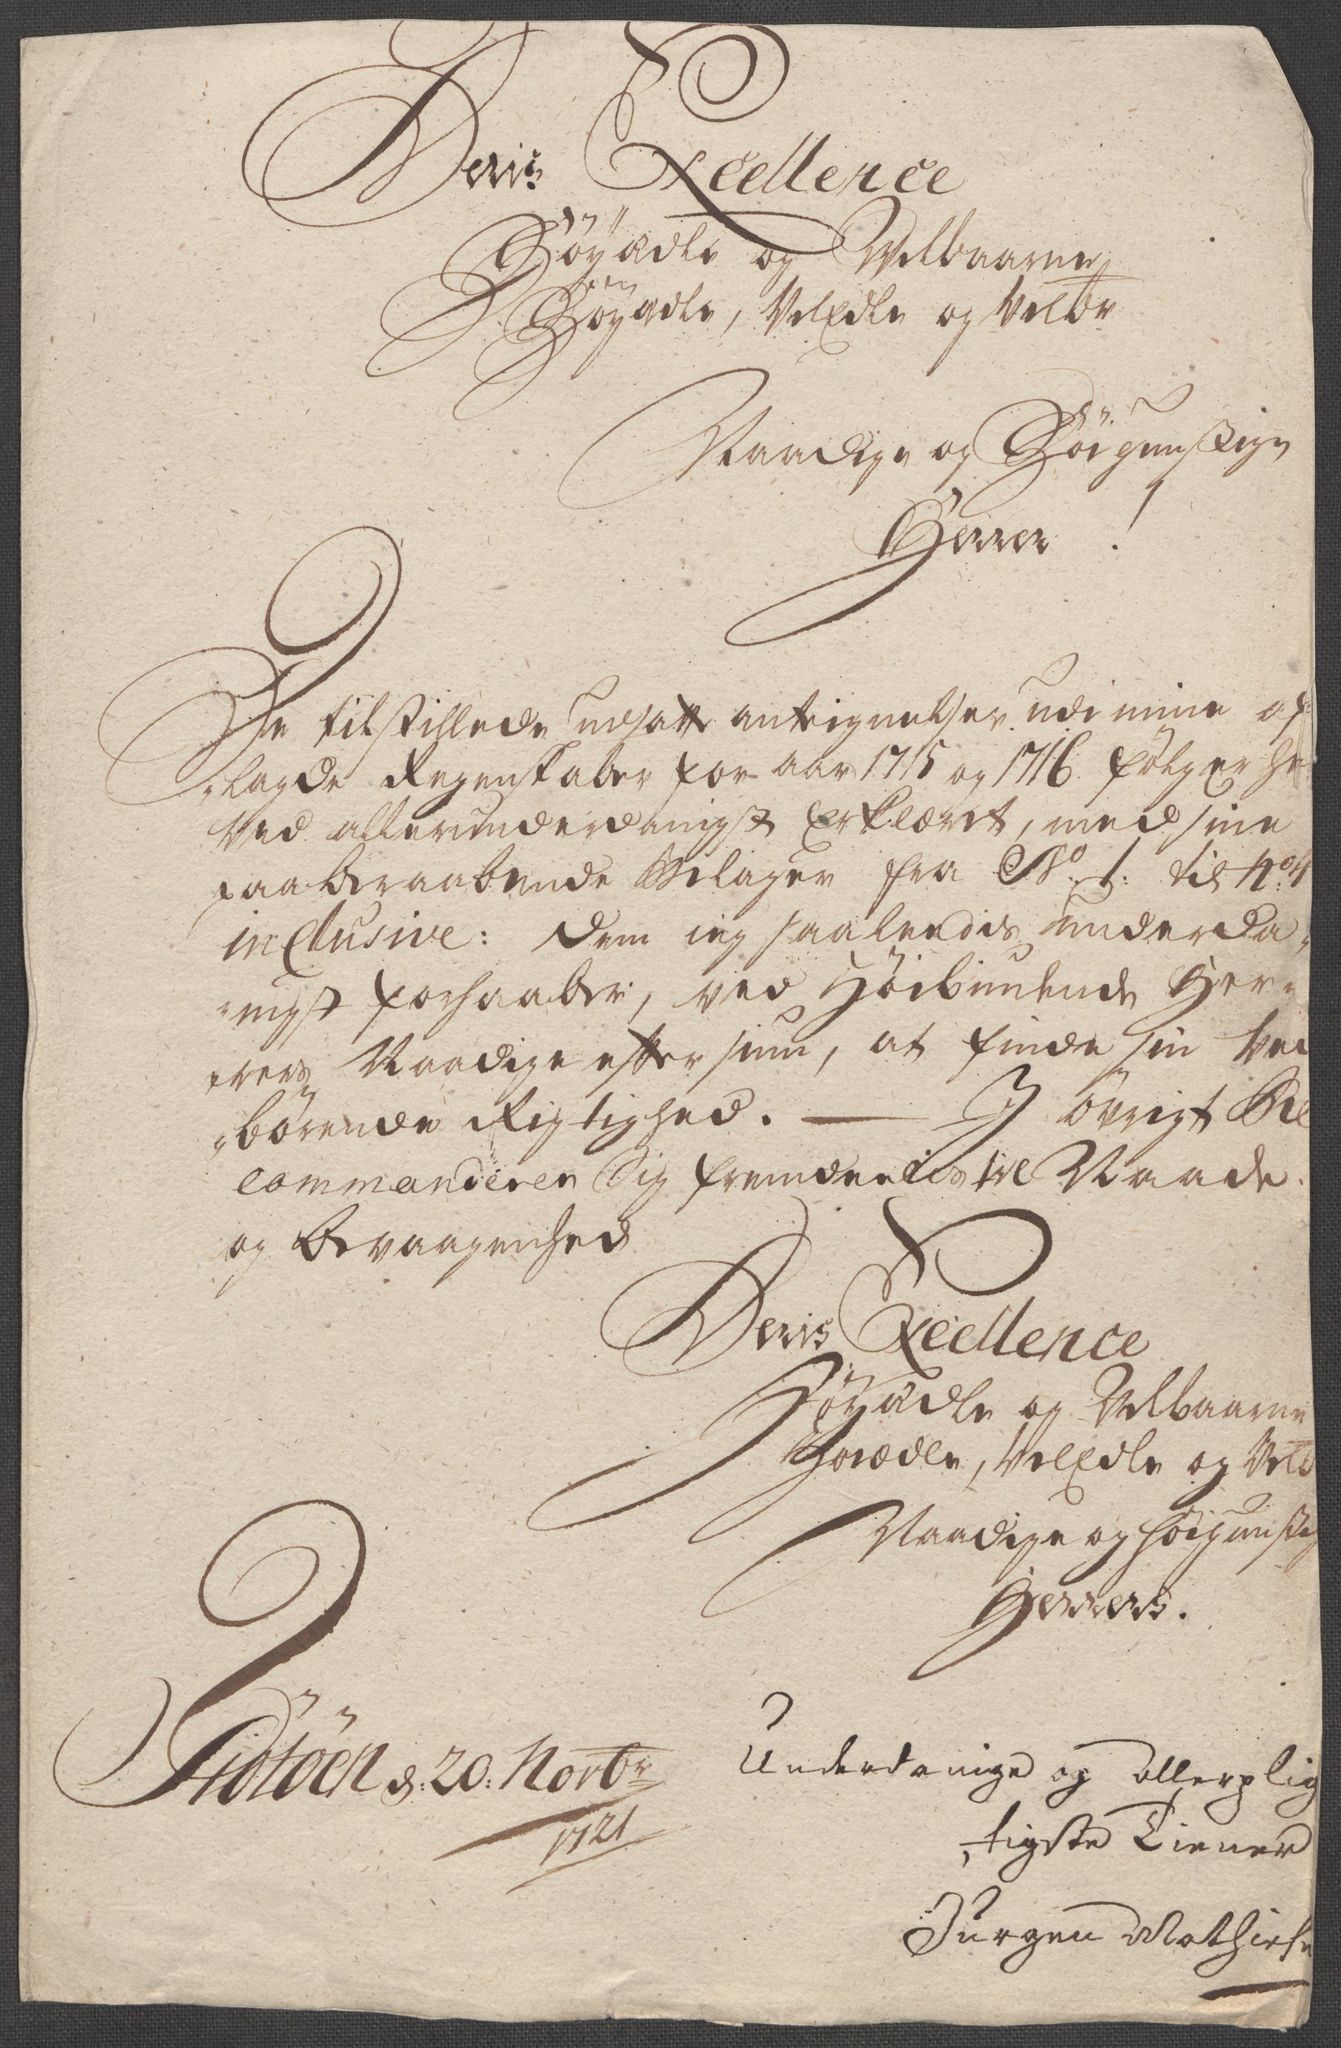 Deris Excellence
Höyædle og Velbaarne,
Höyædle, VelEdle og Velbr
Naadige og Höigunstige
Herrer!
De tilstillede udsatte antegnelser udi mine af-
lagde Regenskaber for aar 1715 og 1716. følger her
ved allerunderdanigst Erklæret, med sine
paaberaabende Bilager fra No. 1. til No. 4
inclusive: dem ieg saaledis underda-
nigst forhaaber, ved Høibemte Her-
rers Naadige eftersiun, at finde sin ved
børende Rigtighed. — I øvrigt Be
commanderer Sig fremdeelis til Naade
og Bevaagenhed
Deris Excellence
Höyædle og Velbaarne
Höiædle, VelEdle og Velb
Naadige og höigunstig
Herrers.
Tidtöen d: 20: Novbr
1721
Underdanige og allerplig
tigste Tiener
Jürgen Mathiese